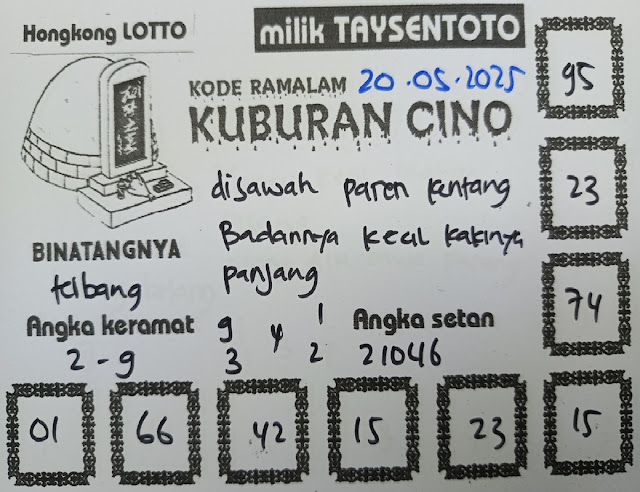 Hongkong LOTTO
milik TAYSENTOTO
KODE RAMALAM 20.05.2025
KUBURAN CINO
disawah paren kentang
Badannya kecil kakinya
panjang
BINATANGNYA
Angka keramat
2-9
9 4 1
3 2
Angka setan
21046
95
23
74
01
66
42
15
23
15